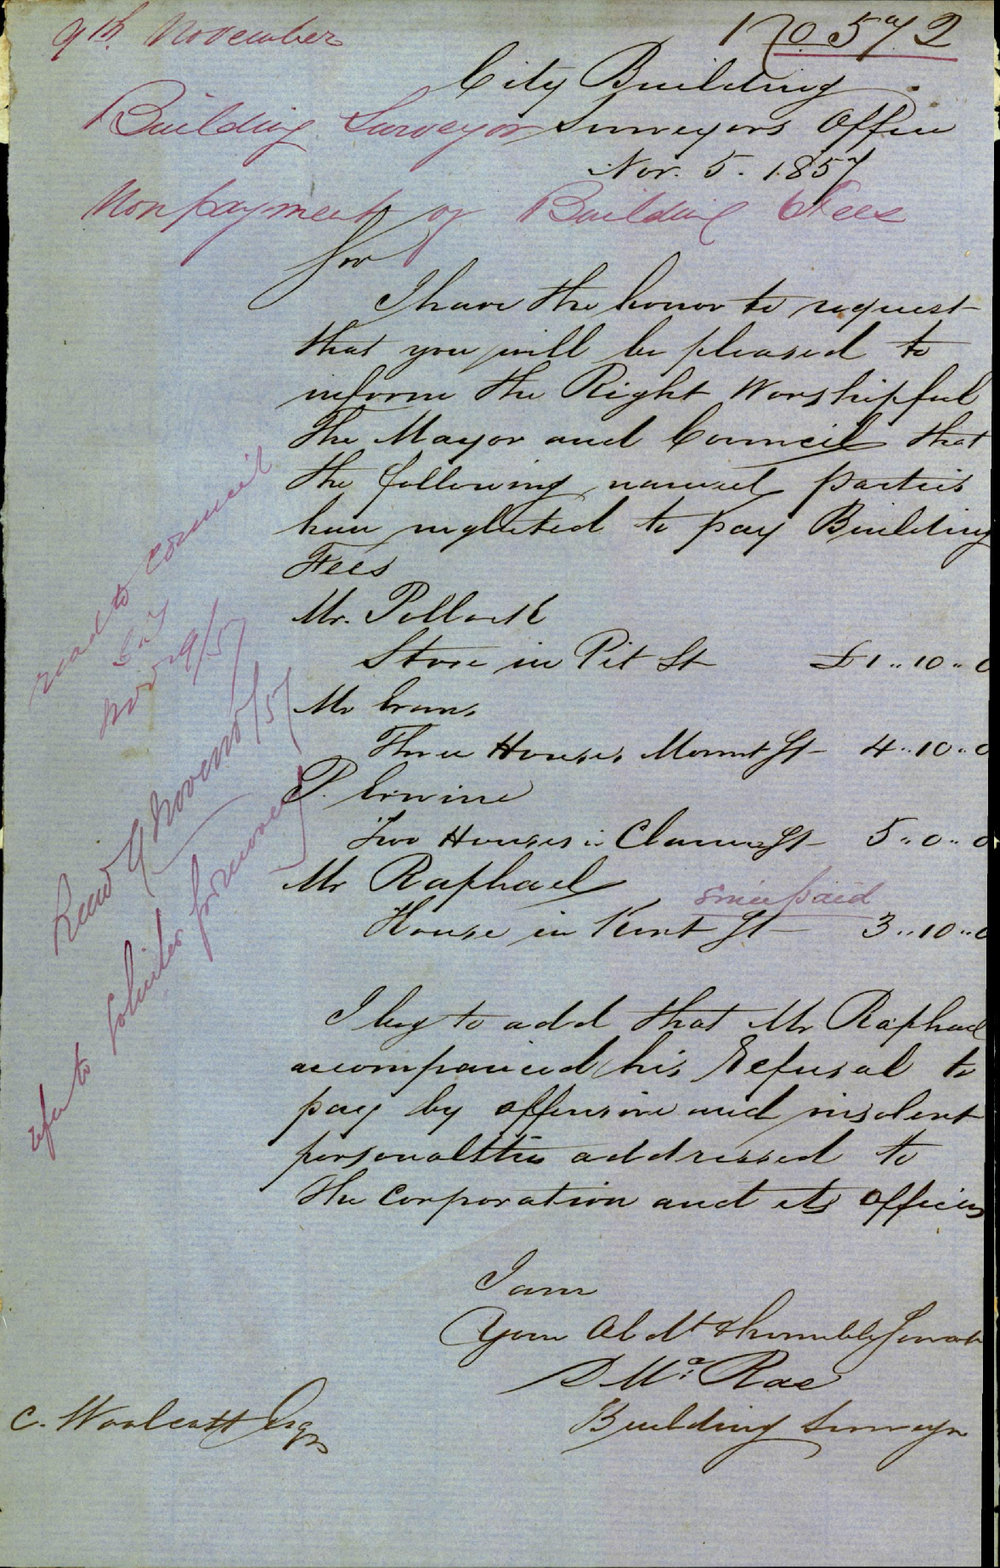 9th November
No. 572
City Building
Building Surveyor
Surveyors Office
Nov. 5. 1857
Non payment of Building Fees
Sir
I have the honor to request
that you will be pleased to
inform the Right Worshipful
The Mayor and Council that
the following named parties
have neglected to pay Building
Fees
Mr. Pollock
Store in Pit St £1..10..0
Mr Evans
Three Houses Mount St 4..10..0
P. Erwine
Two Houses in Clarence St 5..0..0
Mr Raphael
since paid
House in Kent St 3..10..0
I beg to add that Mr Raphael
accompanied his refusal to
pay by offensive and insolent
personalities addressed to
the Corporation and its officers
I am
Your Ob Mt & humble Servant
D McRae
Building Surveyor
C. Woolcott Esqr
read to Council
Nov 9/57
Read 9 November/57
refer to Solicitor for recovery